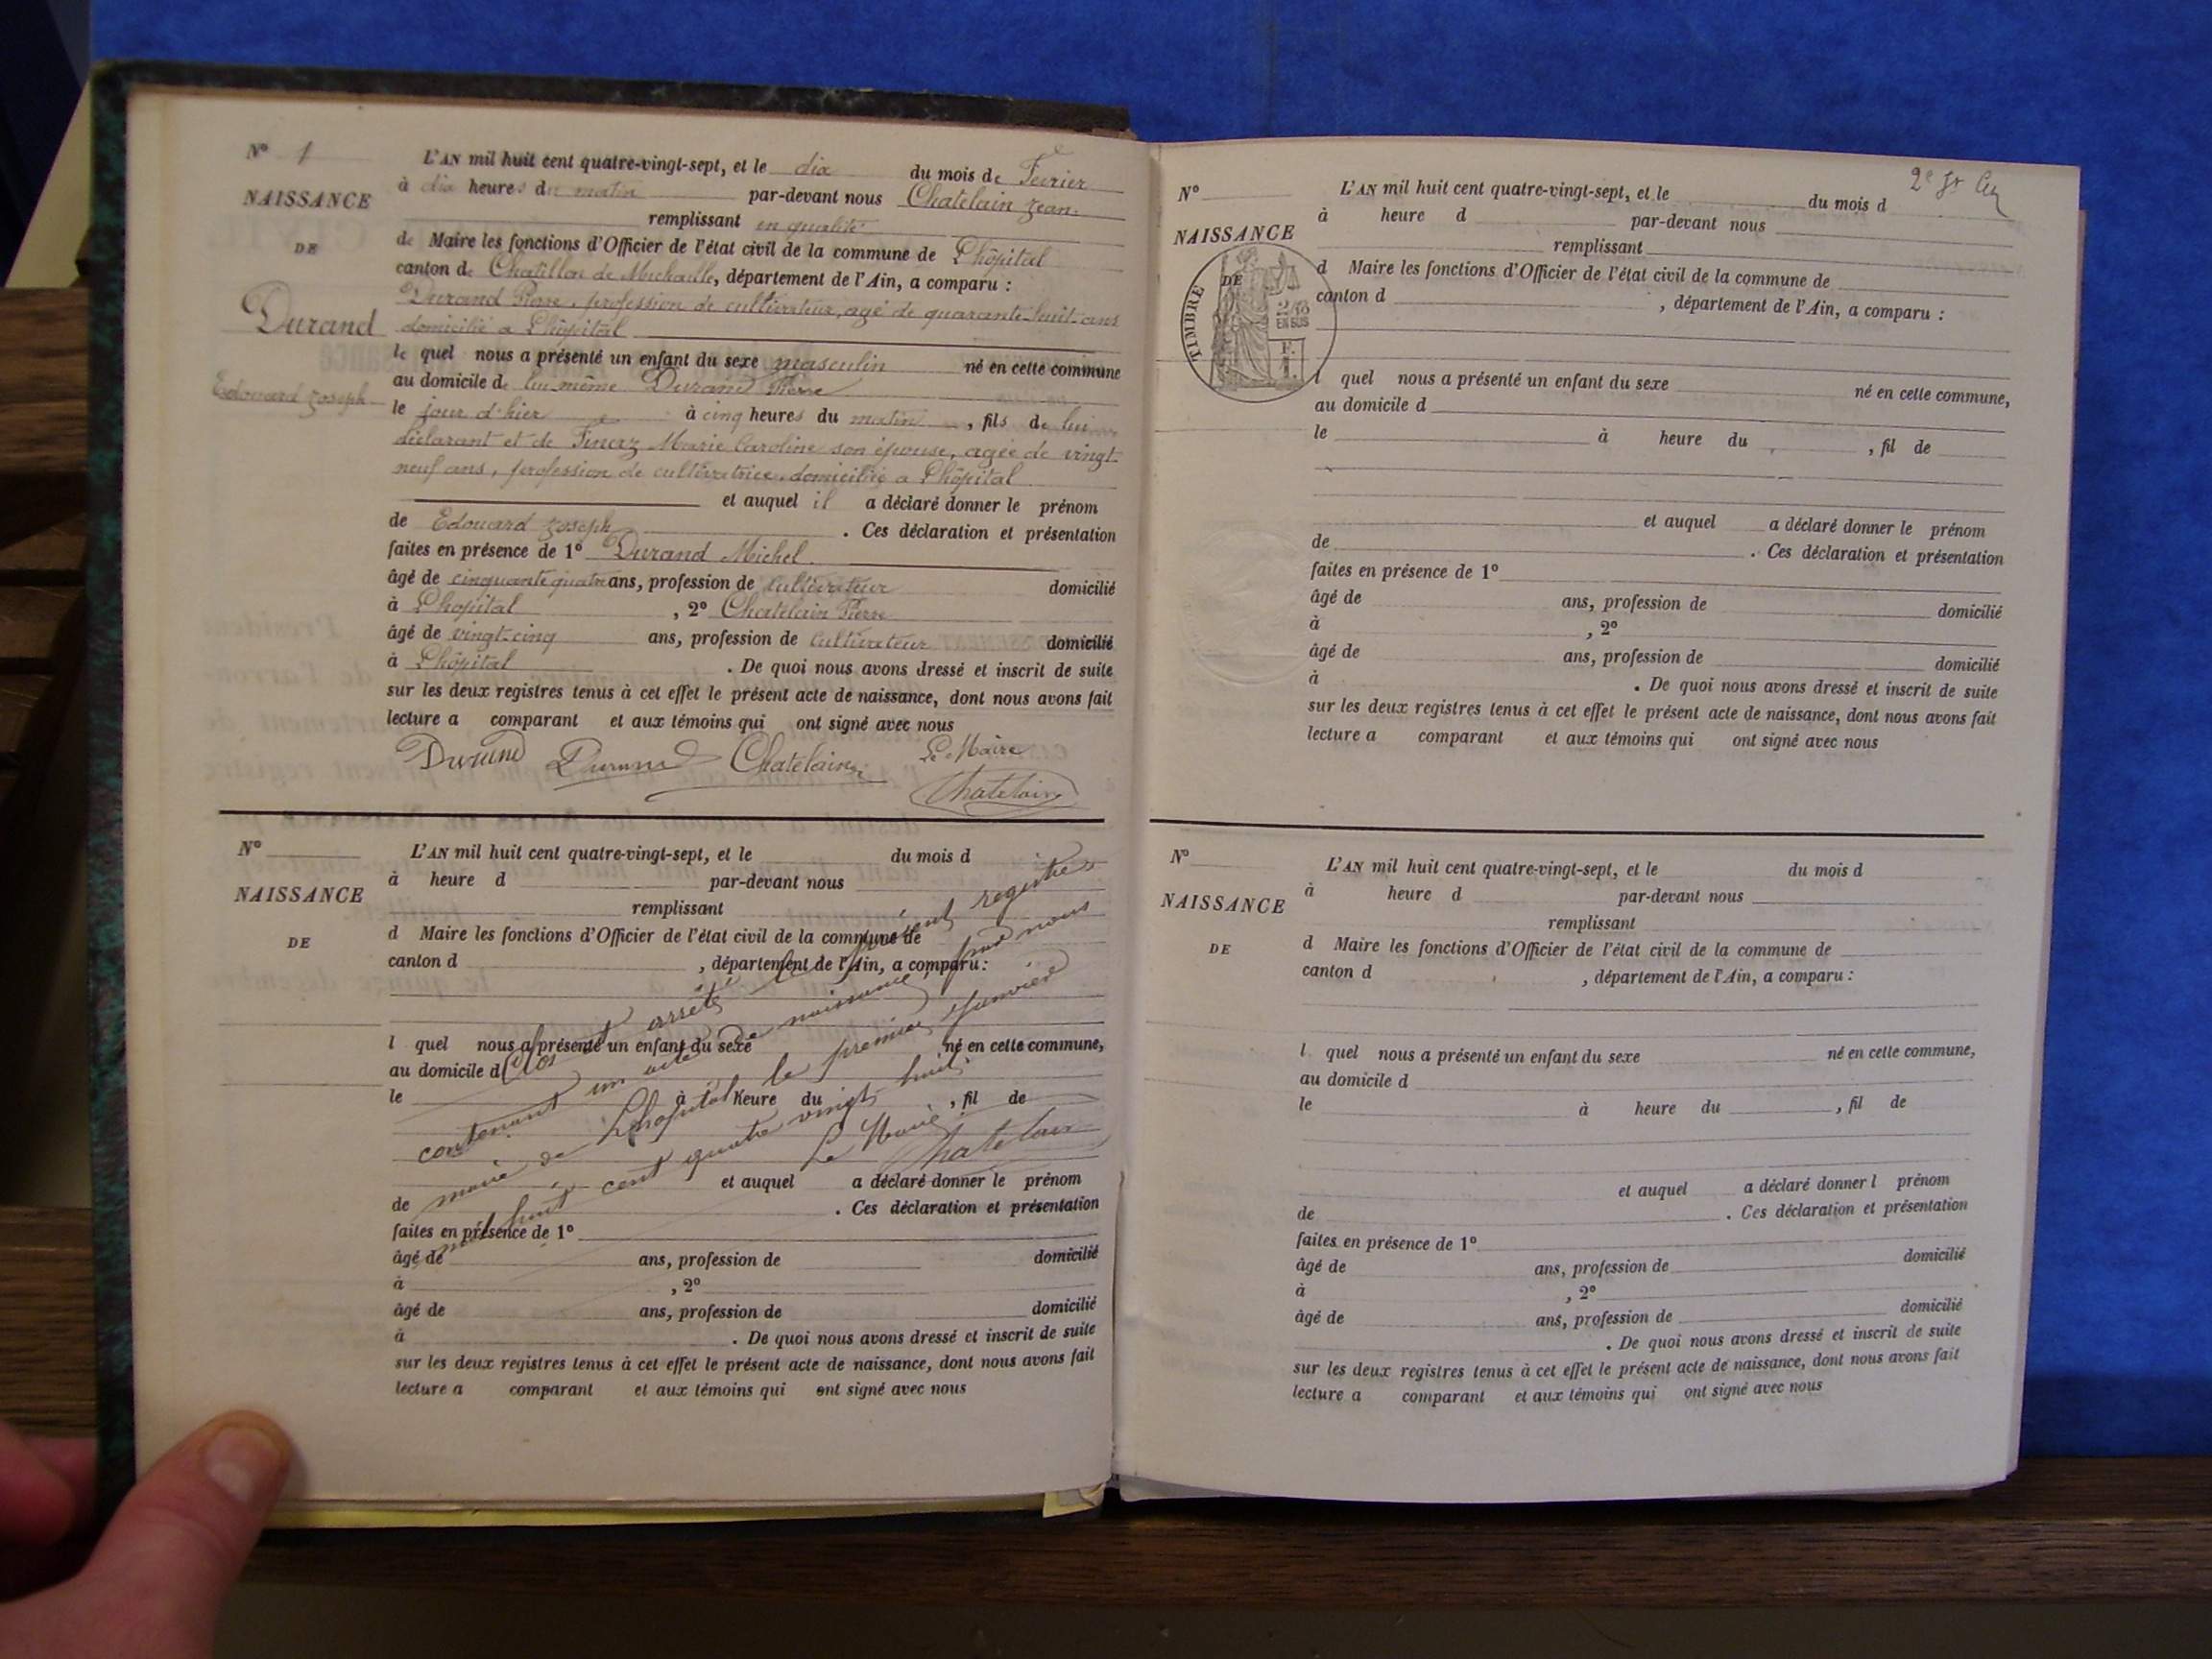 N° 1
NAISSANCE
DE
Durand
Edouard Joseph
L'AN mil huit cent quatre-vingt-sept, et le dix du mois de Fevrier
à dix heures du matin par-devant nous Chatelain Jean
remplissant en qualité
de Maire les fonctions d'Officier de l'état civil de la commune de Lhôpital
canton de Chatillon de Michaille, département de l'Ain, a comparu :
Durand Pierre, profession de cultivateur, agé de quarante-huit ans
domicilié a Lhôpital
le quel nous a présenté un enfant du sexe masculin né en cette commune
au domicile de lui même Durand Pierre
le jour d'hier à cinq heures du matin, fils de lui
déclarant et de Finerz Marie Caroline son épouse, agée de vingt
neuf ans, profession de cultivatrice, domiciliée a Lhôpital
et auquel il a déclaré donner le prénom
de Edouard Joseph. Ces déclaration et présentation
faites en présence de 1° Durand Michel
âgé de cinquante quatre ans, profession de cultivateur domicilié
à Lhopital, 2° Chatelain Pierre
âgé de vingt-cinq ans, profession de cultivateur domicilié
à Lhôpital. De quoi nous avons dressé et inscrit de suite
sur les deux registres tenus à cet effet le présent acte de naissance, dont nous avons fait
lecture a comparant et aux témoins qui ont signé avec nous
Durand Durand Chatelain Le Maire
Chatelain
N°
NAISSANCE
DE
L'AN mil huit cent quatre-vingt-sept, et le du mois d
à heure d par-devant nous
remplissant
d Maire les fonctions d'Officier de l'état civil de la commune de
canton d , département de l'Ain, a comparu :
l quel nous a présenté un enfant du sexe né en cette commune,
au domicile d
le à heure du , fil de
et auquel a déclaré donner le prénom
de . Ces déclaration et présentation
faites en présence de 1°
âgé de ans, profession de domicilié
à , 2°
âgé de ans, profession de domicilié
à . De quoi nous avons dressé et inscrit de suite
sur les deux registres tenus à cet effet le présent acte de naissance, dont nous avons fait
lecture a comparant et aux témoins qui ont signé avec nous
Clos et arrêté le présent registre
contenant un acte de naissance par nous
maire de Lhopital le premier Janvier
mil huit cent quatre vingt huit
Le Maire
Chatelain
2e
N°
NAISSANCE
DE
TIMBRE
2/10
EN SUS
L'AN mil huit cent quatre-vingt-sept, et le du mois d
à heure d par-devant nous
remplissant
d Maire les fonctions d'Officier de l'état civil de la commune de
canton d , département de l'Ain, a comparu :
l quel nous a présenté un enfant du sexe né en cette commune,
au domicile d
le à heure du , fil de
et auquel a déclaré donner le prénom
de . Ces déclaration et présentation
faites en présence de 1°
âgé de ans, profession de domicilié
à , 2°
âgé de ans, profession de domicilié
à . De quoi nous avons dressé et inscrit de suite
sur les deux registres tenus à cet effet le présent acte de naissance, dont nous avons fait
lecture a comparant et aux témoins qui ont signé avec nous
N°
NAISSANCE
DE
L'AN mil huit cent quatre-vingt-sept, et le du mois d
à heure d par-devant nous
remplissant
d Maire les fonctions d'Officier de l'état civil de la commune de
canton d , département de l'Ain, a comparu :
l quel nous a présenté un enfant du sexe né en cette commune,
au domicile d
le à heure du , fil de
et auquel a déclaré donner l prénom
de . Ces déclaration et présentation
faites en présence de 1°
âgé de ans, profession de domicilié
à , 2°
âgé de ans, profession de domicilié
. De quoi nous avons dressé et inscrit de suite
sur les deux registres tenus à cet effet le présent acte de naissance, dont nous avons fait
lecture a comparant et aux témoins qui ont signé avec nous